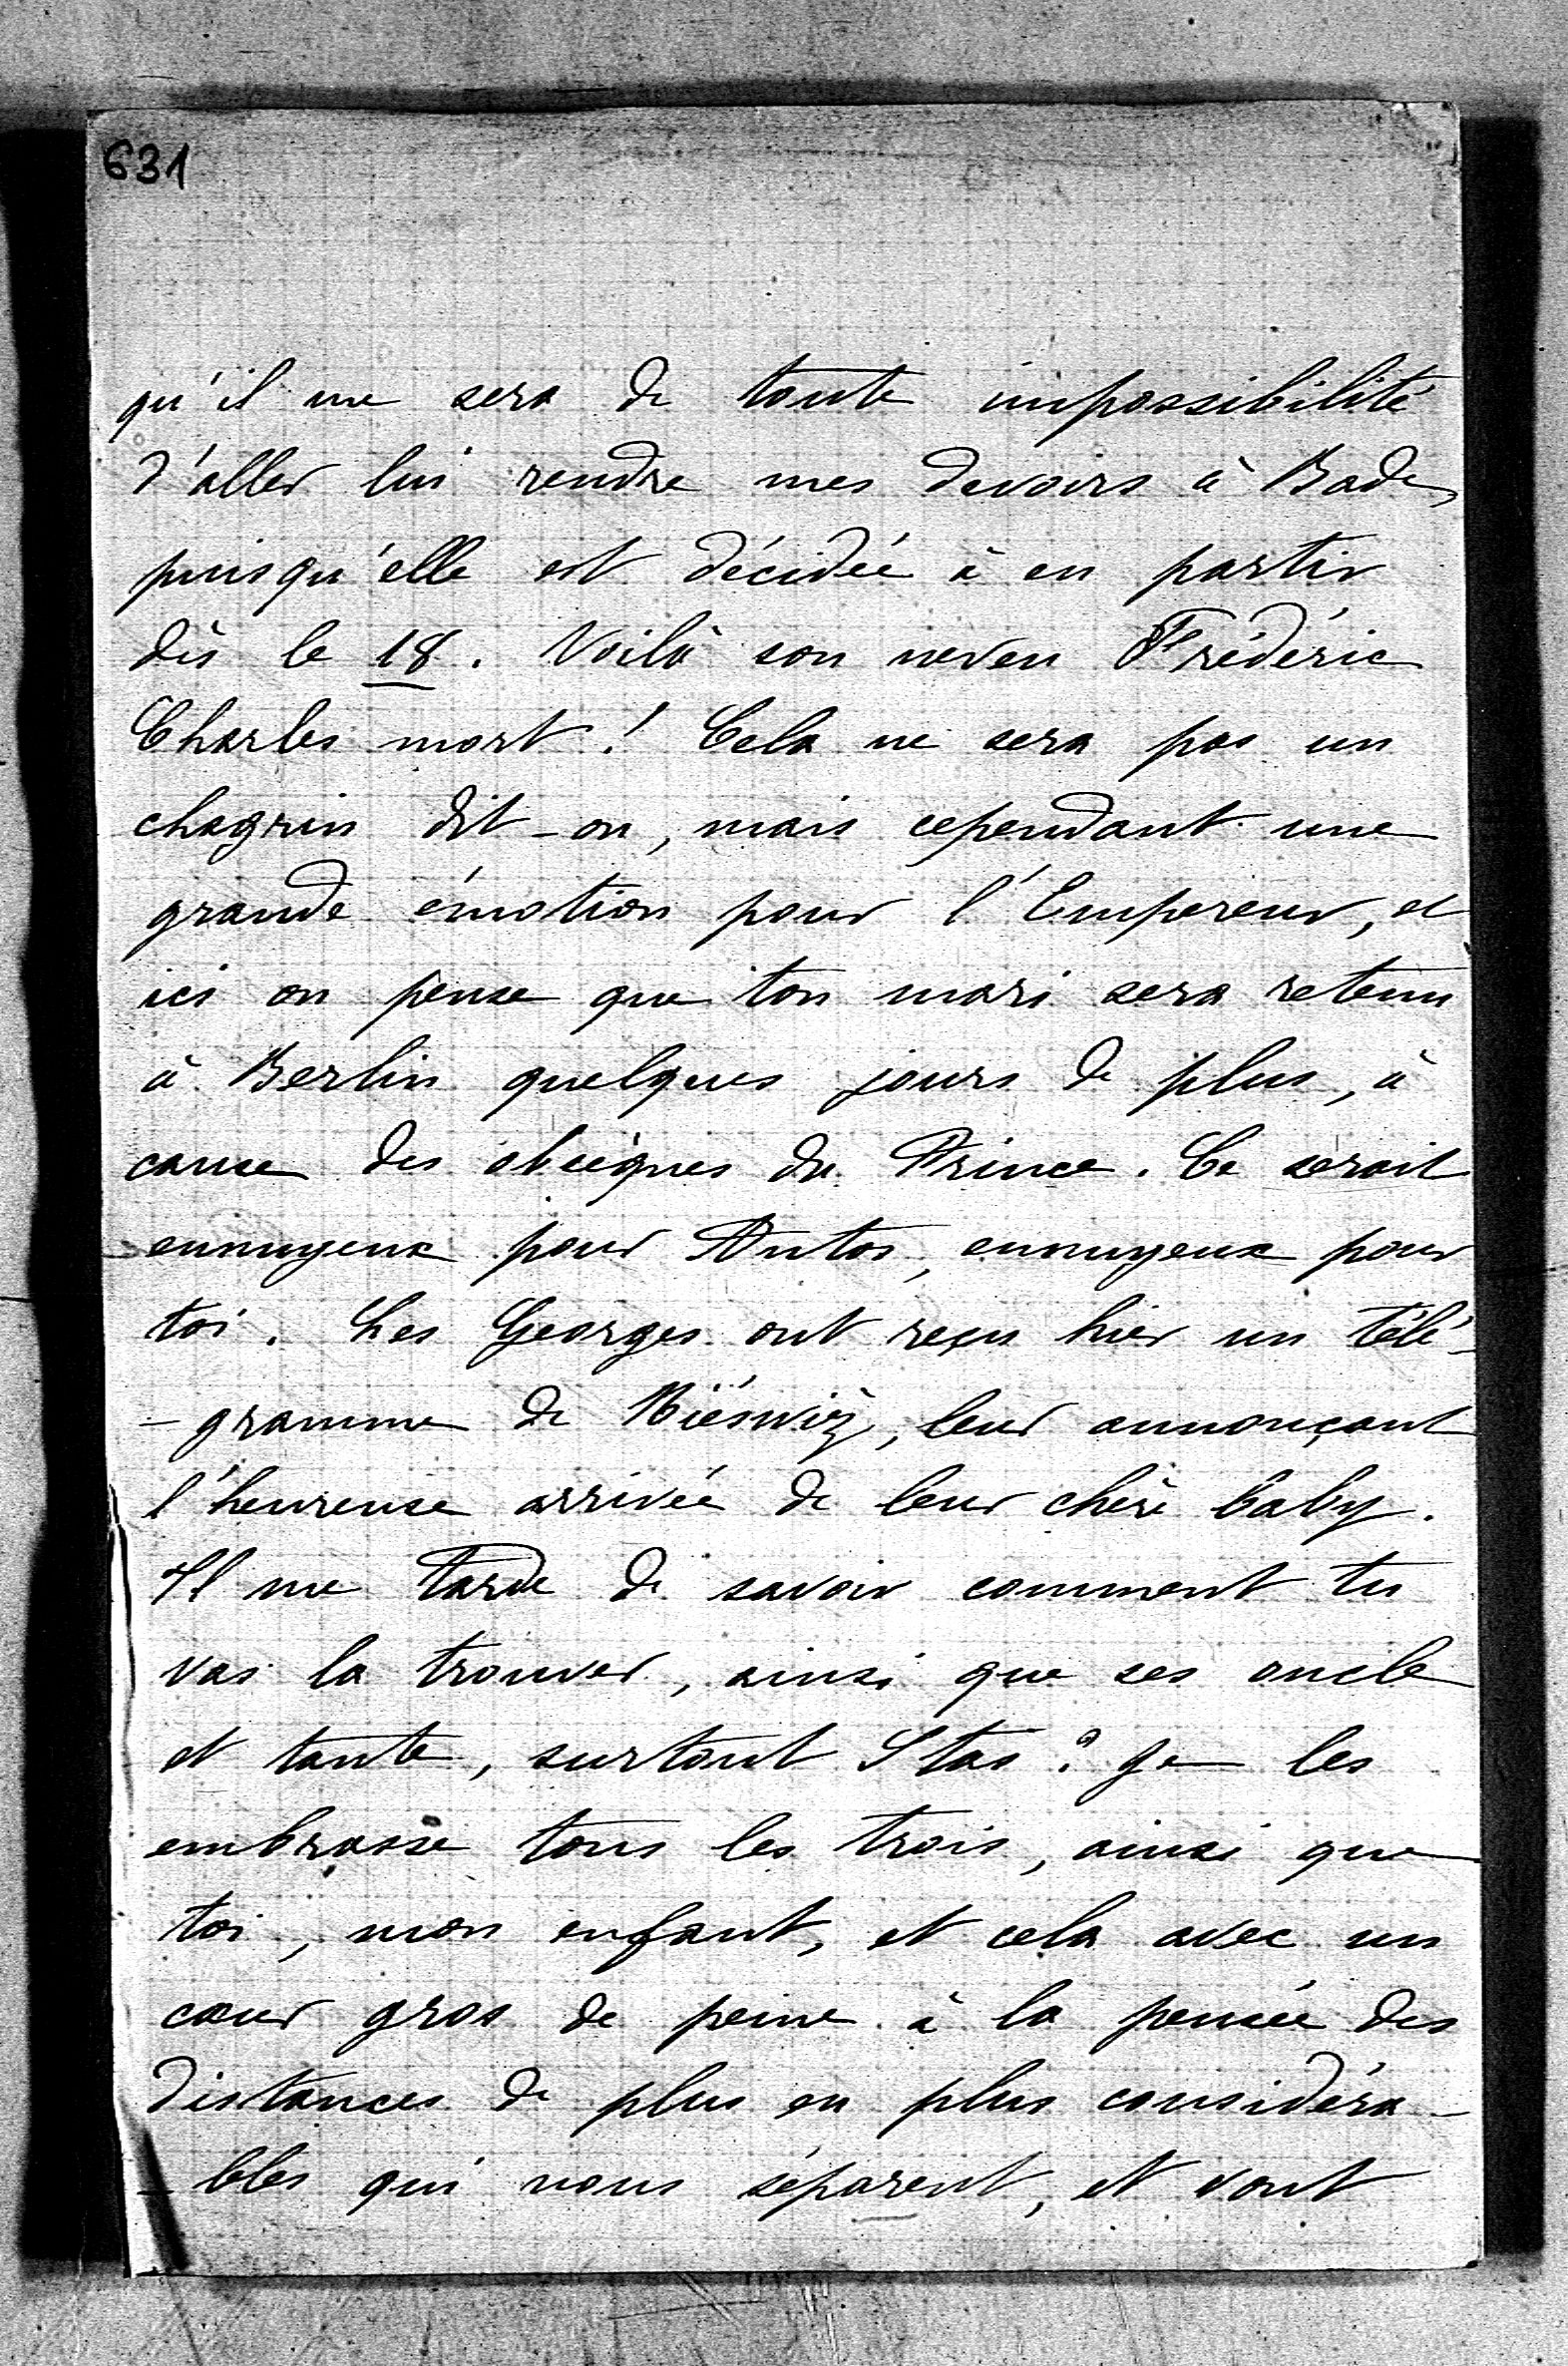 631
qu'il me sera de toute impossibilité
d'aller lui rendre mes devoirs à Bade,
puisqu'elle est décidée à en partir
dès le 18. Voilà son neveu Frédéric
Charles mort! Cela ne sera pas un
chagrin dit-on, mais cependant une
grande émotion pour l'Empereur, et
ici on pense que ton mari sera retenu
à Berlin quelques jours de plus, à
cause des obsèques du Prince. Ce serait
ennuyeux pour Antos, ennuyeux pour
toi. Les Georges ont reçu hier un télé-
-gramme de Niéswiż, leur annonçant
l'heureuse arrivée de leur chère baby.
Il me tarde de savoir comment tu
vas la trouver, ainsi que ses oncle
et tante, surtout Stas? Je les
embrasse tous les trois, ainsi que
toi, mon enfant, et cela avec un
cœur gros de peine à la pensée des
distances de plus en plus considéra-
-bles qui nous séparent, et vont